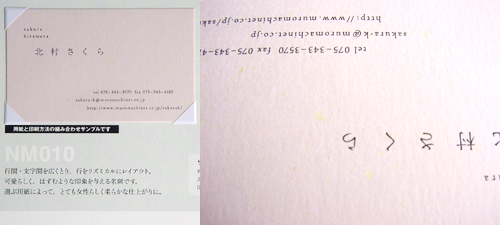 sakura
kitamura
北村さくら
tel 075-343-3570 fax 075-343-4185
sakura-k@muromachinet.co.jp
http://www.muromachinet.co.jp/sakurak/
用紙と印刷方法の組み合わせサンプルです
NM010
行間・文字間を広くとり、行をリズミカルにレイアウト。
可愛らしく、はずむような印象を与える名刺です。
選ぶ用紙によって、とても女性らしく柔らかな仕上がりに。
村さくら
tel 075-343-3570 fax 075-343-4
sakura-k@muromachinet.co.jp
http://www.muromachinet.co.jp/sa